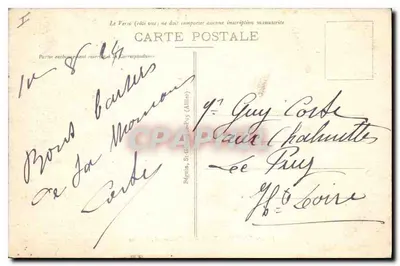 I
Le Verso (côté vue) ne doit comporter aucune inscription manuscrite
CARTE POSTALE
Partie exclusivement réservée à la Correspondance
10 8 14
Bons baisers
de ta Maman
Coste
(Allier)
Mr Guy Coste
aux Chalmettes
Le Puy
Hte Loire